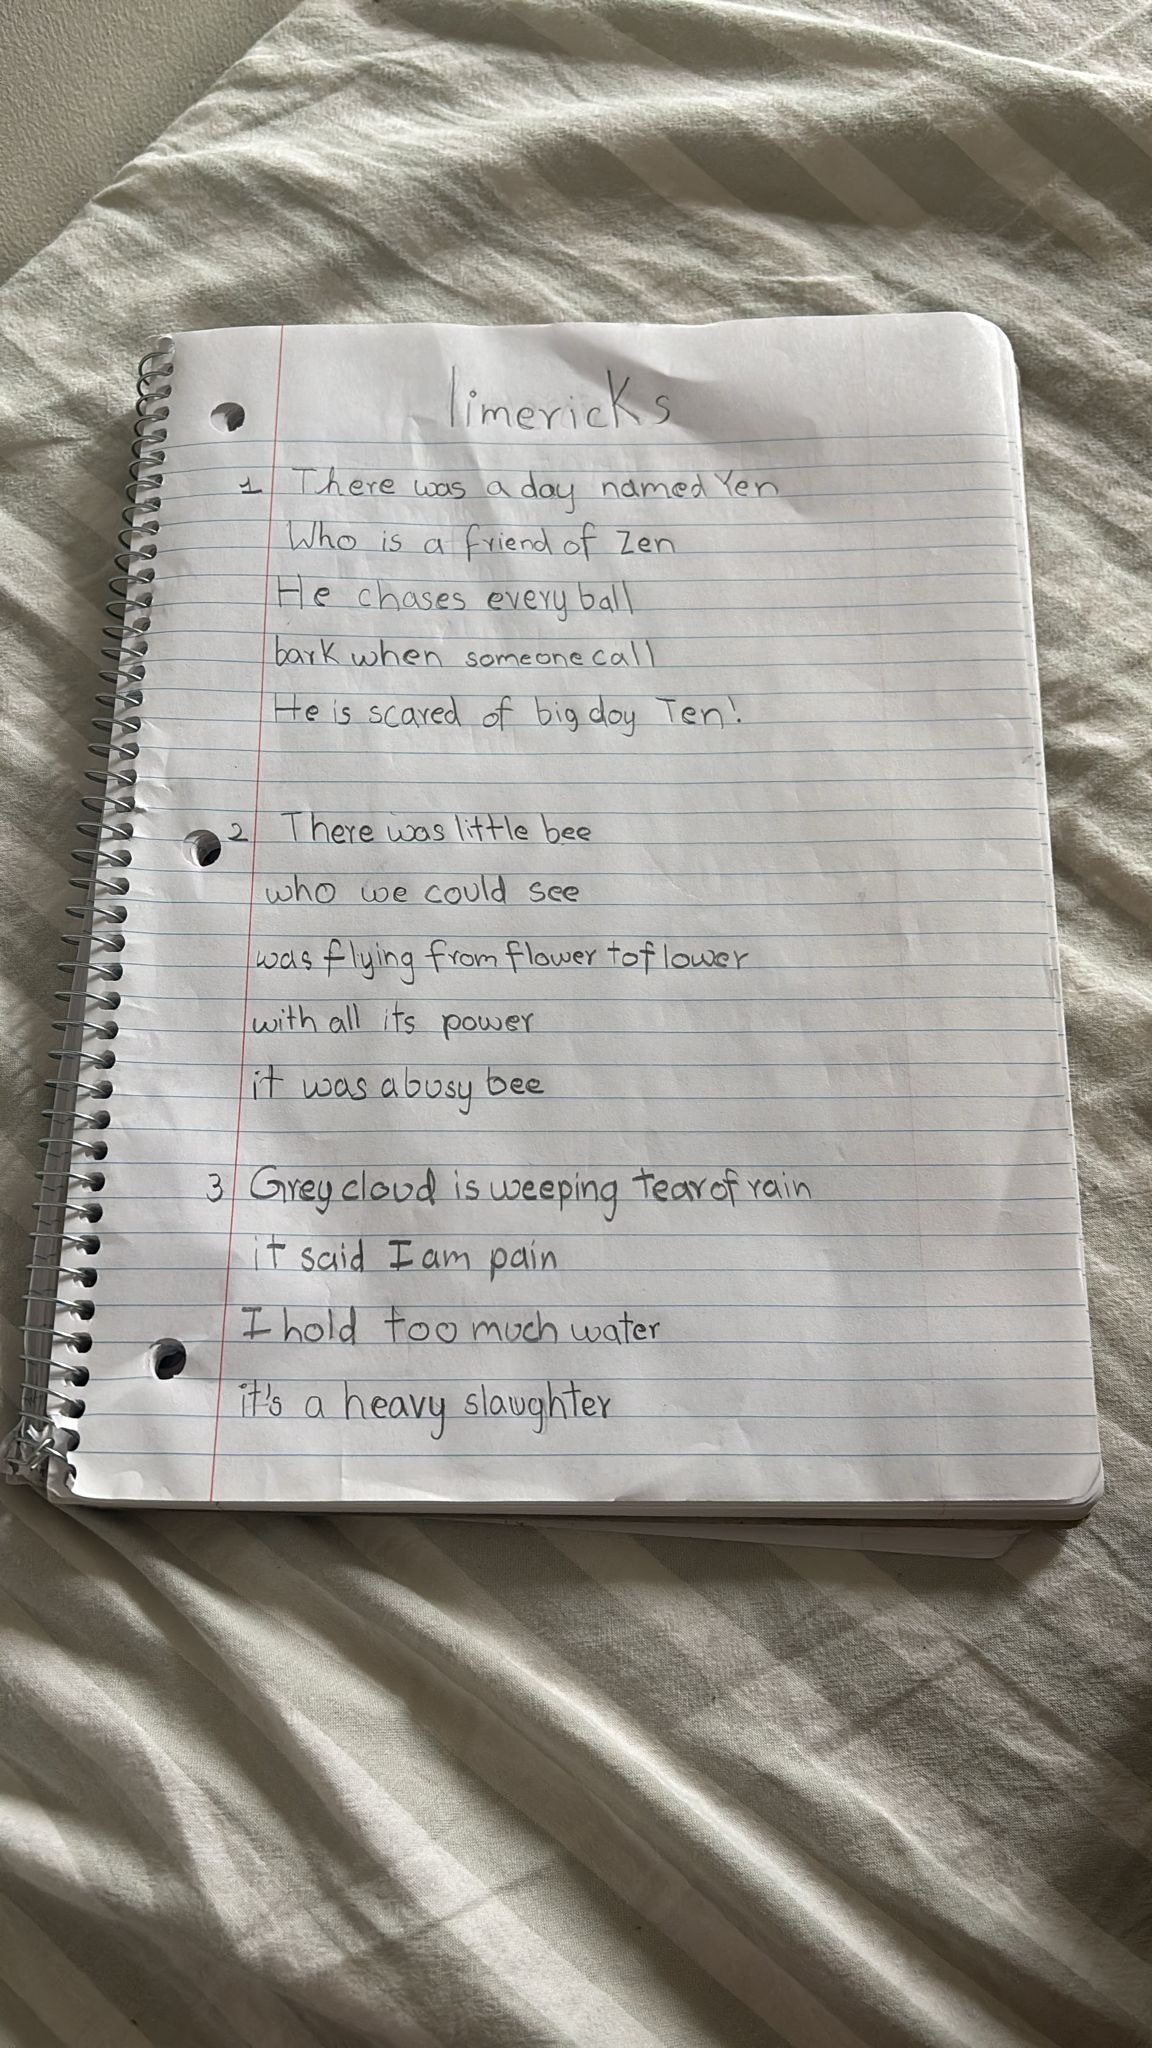 limericks
1 There was a day named Yen
Who is a friend of Zen
He chases every ball
bark when someone call
He is scared of big doy Ten!
2 There was little bee
who we could see
was flying from flower to flower
with all its power
it was a busy bee
3 Grey cloud is weeping tear of rain
it said I am pain
I hold too much water
it's a heavy slaughter